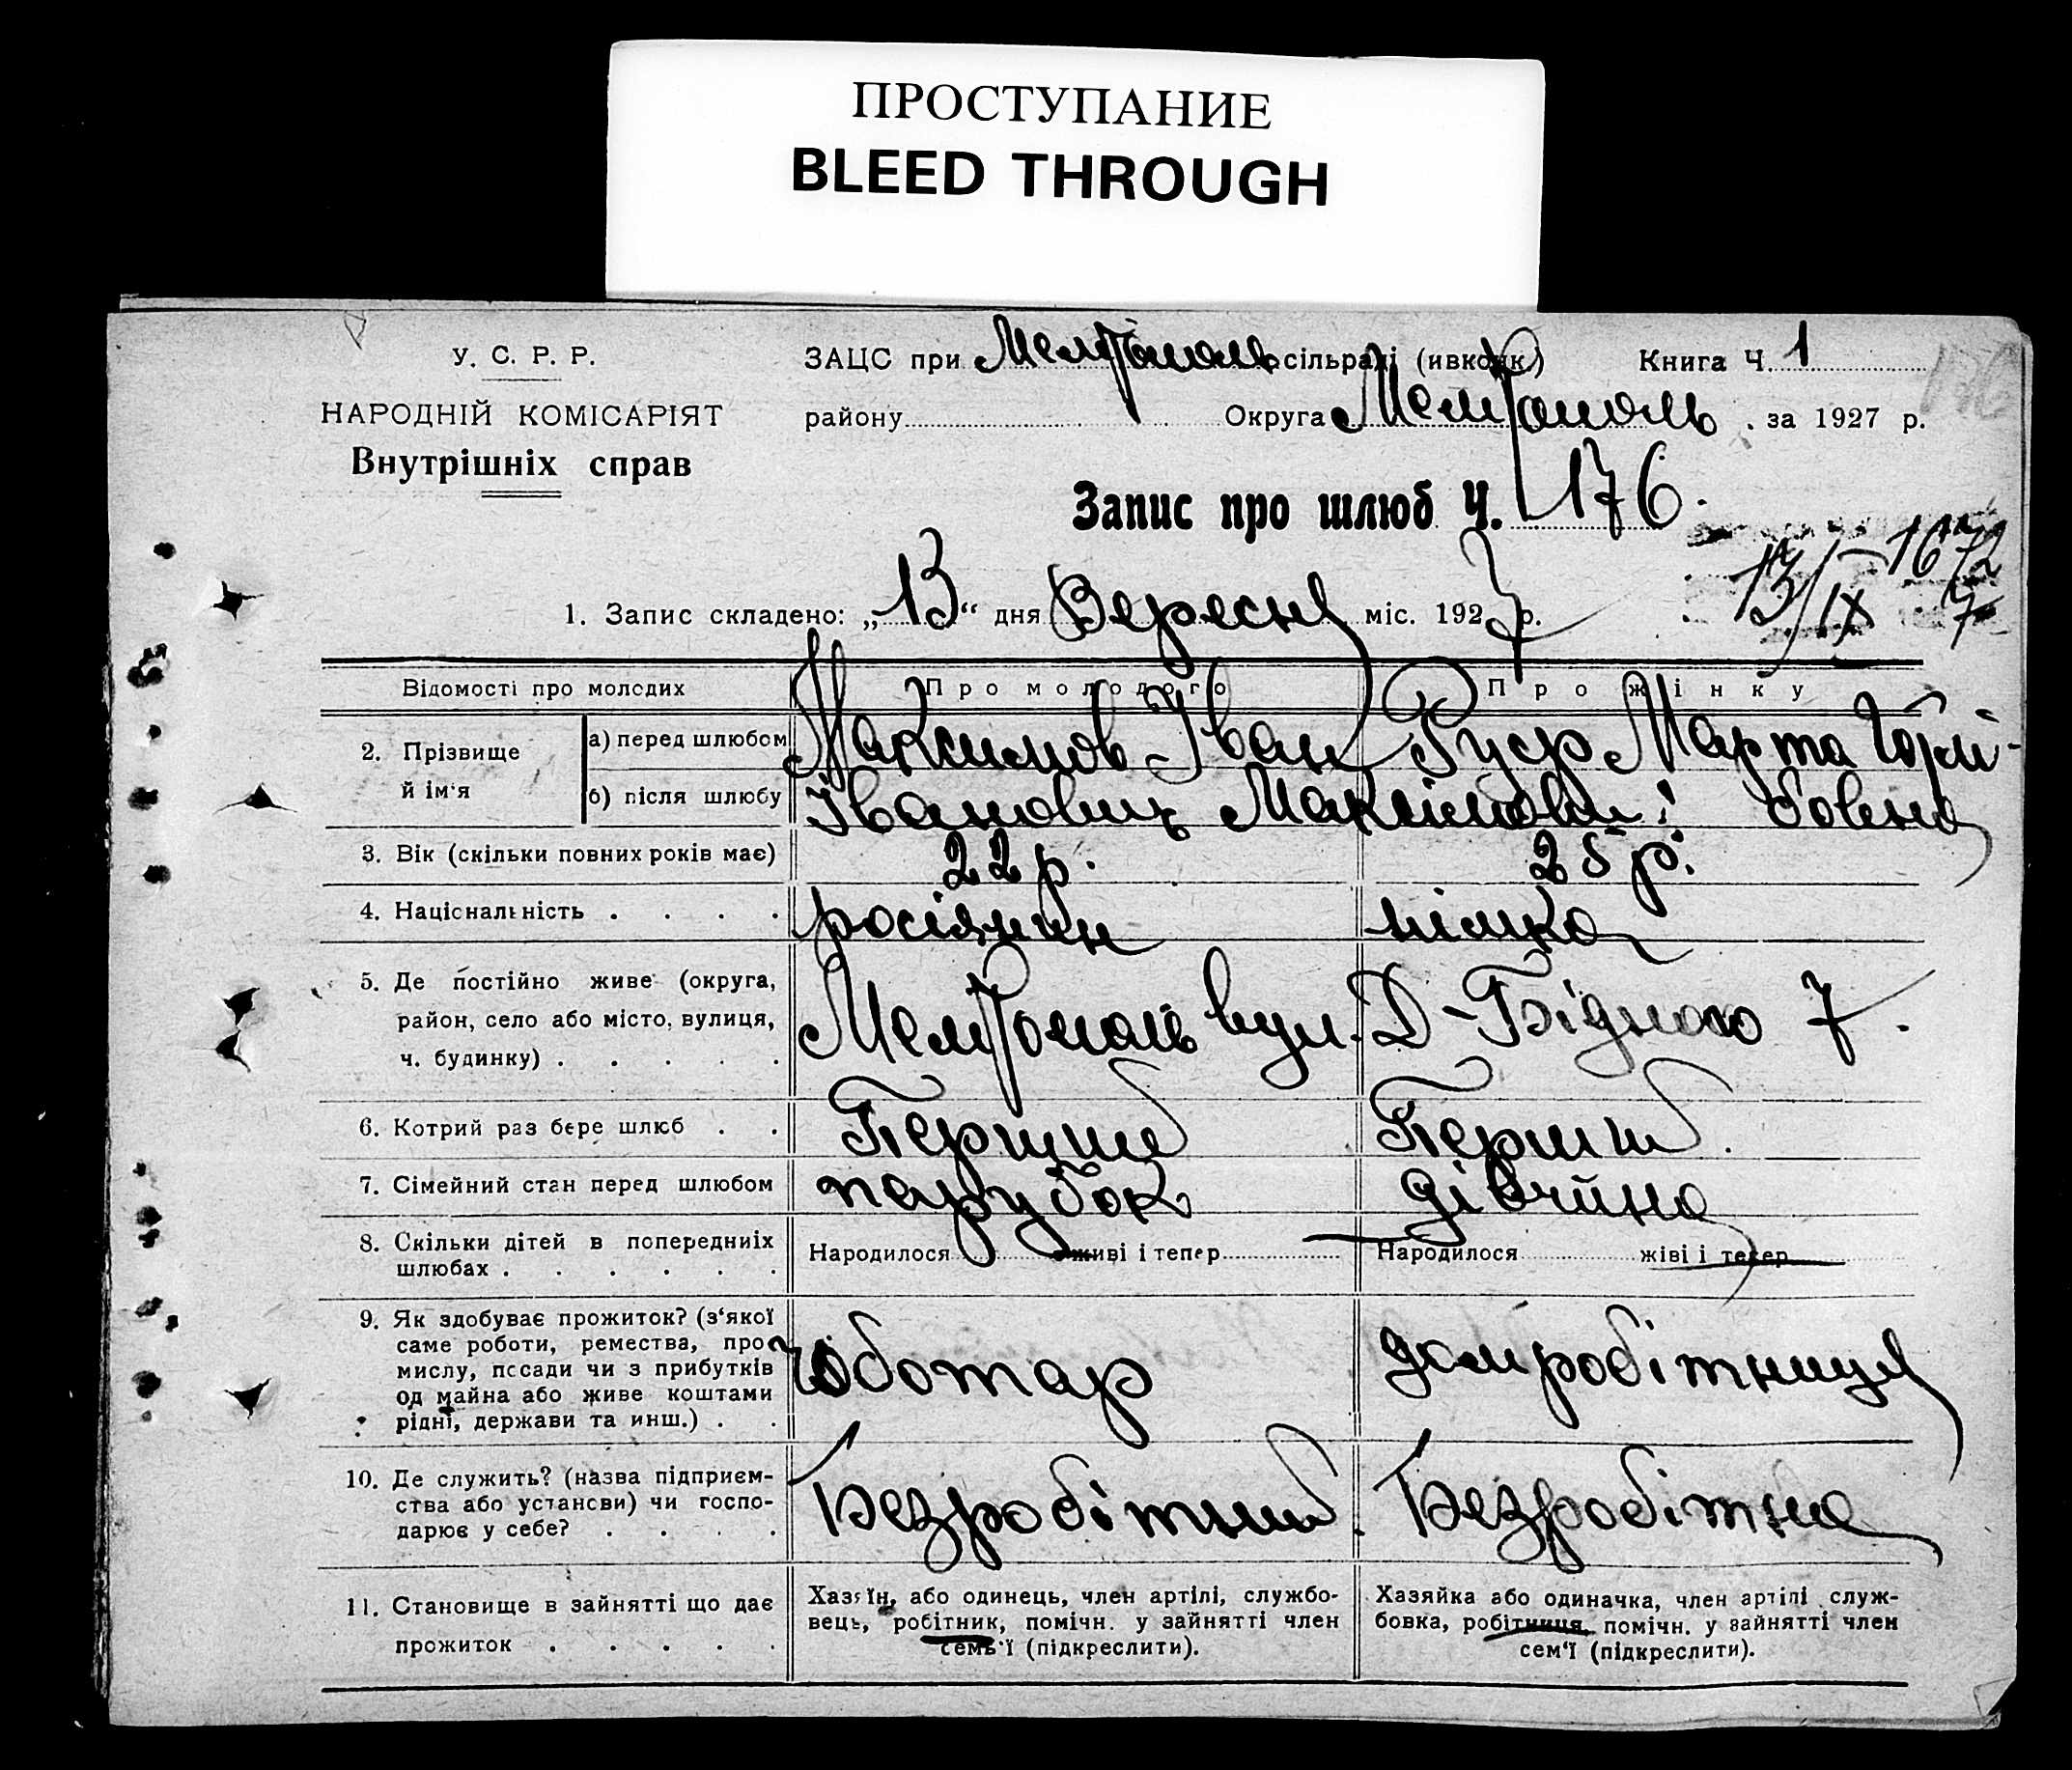 ПРОСТУПАНИЕ
BLEED THROUGH
У. С. Р. Р.
НАРОДНІЙ КОМІСАРІЯТ
Внутрішніх справ
ЗАЦС при Мелітополь сільраді (ивконк.) Книга Ч. 1
району Округа Мелітополь за 1927 р.
176
Запис про шлюб Ч. 176.
13/IX 1672
7
1. Запис складено: „13“ дня Вересня міс. 1927 р.
Відомості про молодих
Про молодого
Про жінку
2. Прізвище й ім'я
а) перед шлюбом
Максимов Іван
Руф Марта
б) після шлюбу
Іванович Максимови
3. Вік (скільки повних років має)
22 р.
25 р.
4. Національність . . . .
росіянин
німка
5. Де постійно живе (округа,
район, село або місто, вулиця,
ч. будинку) . . . . .
Мелітополь вул. Д-Бідного 7.
6. Котрий раз бере шлюб . .
Перший
Перший.
7. Сімейний стан перед шлюбом
парубок
дівчина
8. Скільки дітей в попередніх
шлюбах . . . . . .
Народилося живі і тепер
Народилося жіві і тепер
9. Як здобуває прожиток? (з'якої
саме роботи, ремества, про-
мислу, посади чи з прибутків
од майна або живе коштами
рідні, держави та инш.) . .
чоботар
домробітниця
10. Де служить? (назва підприєм-
ства або установи) чи госпо-
дарює у себе? . . . .
Безробітний.
Безробітна
11. Становище в зайнятті що дає
прожиток . . . . .
Хазяїн, або одинець, член артілі, службо-
вець, робітник, помічн. у зайнятті член
семь'ї (підкреслити).
Хазяйка або одиначка, член артілі служ-
бовка, робітниця, помічн. у зайнятті член
сем'ї (підкреслити).